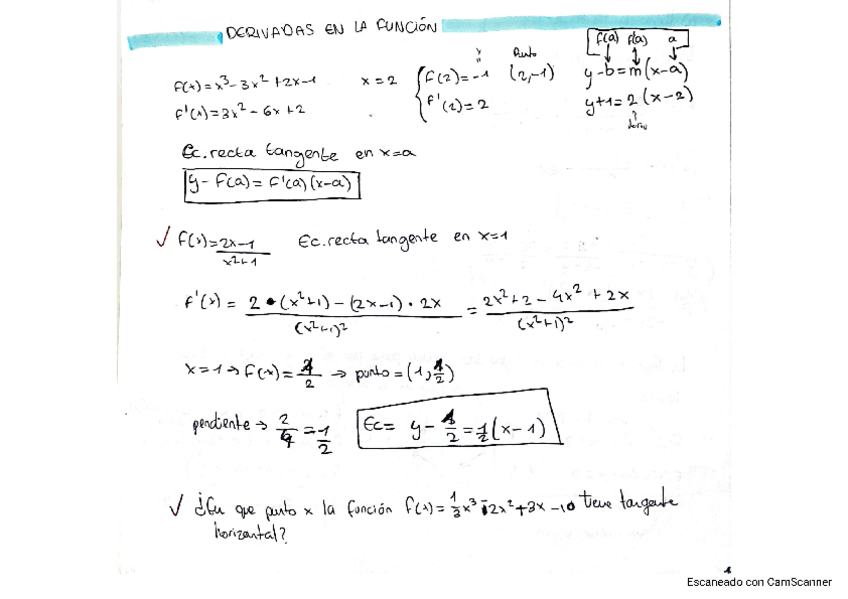 DERIVADAS EN LA FUNCIÓN
f(x)=x³-3x²+2x-1   x=2   { f(2)=-1   Punto (2,-1)
f'(x)=3x²-6x+2   f'(2)=2
f(a) f'(a) a
y-b=m(x-a)
y+1=2(x-2)
Ec. recta tangente en x=a
y-f(a)=f'(a)(x-a)
✓ f(x)=2x-1/x²+1   Ec. recta tangente en x=1
f'(x) = 2•(x²+1)-(2x-1)·2x/(x²+1)² = 2x²+2-4x²+2x/(x²+1)²
x=1→f(x)=1/2 → punto=(1,1/2)
pendiente→ 2/4=1/2   Ec= y-1/2=1/2(x-1)
✓ ¿En que punto x la función f(x)=1/3x³-2x²+3x-10 tiene tangente
horizontal?
1
Escaneado con CamScanner